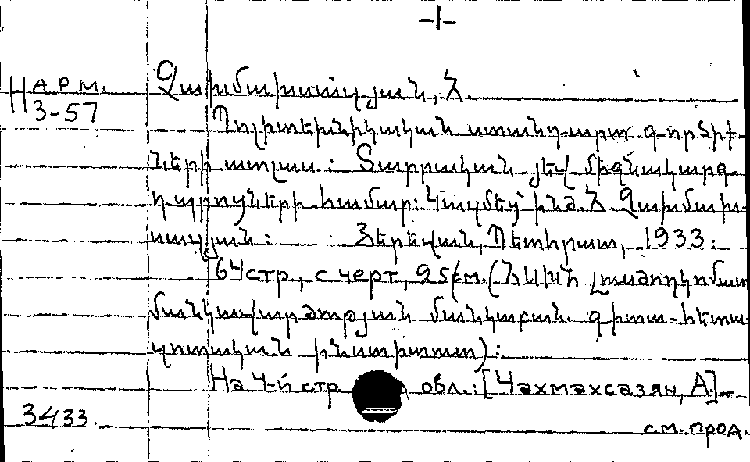 -1-
Н АРМ.
3-57
Չախմախսազյան, Հ.
Պոլիտեխնիկական ստանդարտ գործիք-
ների ատլաս: Տարրական յեվ միջնակարգ
դպրոցների համար: Կազմեց ինժ. Հ Չախմախ-
սազյան: Յերեվան, Պետհրատ, 1933:
64 стр., с черт, 25 см. (ՀՍԽՀ Լուսժողկոմատ
մանկավարժության մանկաբան. գիտա-հետա-
զոտական ինստիտուտ):
На 4-й стр обл.: [Чахмахсазян, А]-
3433.
см. прод.